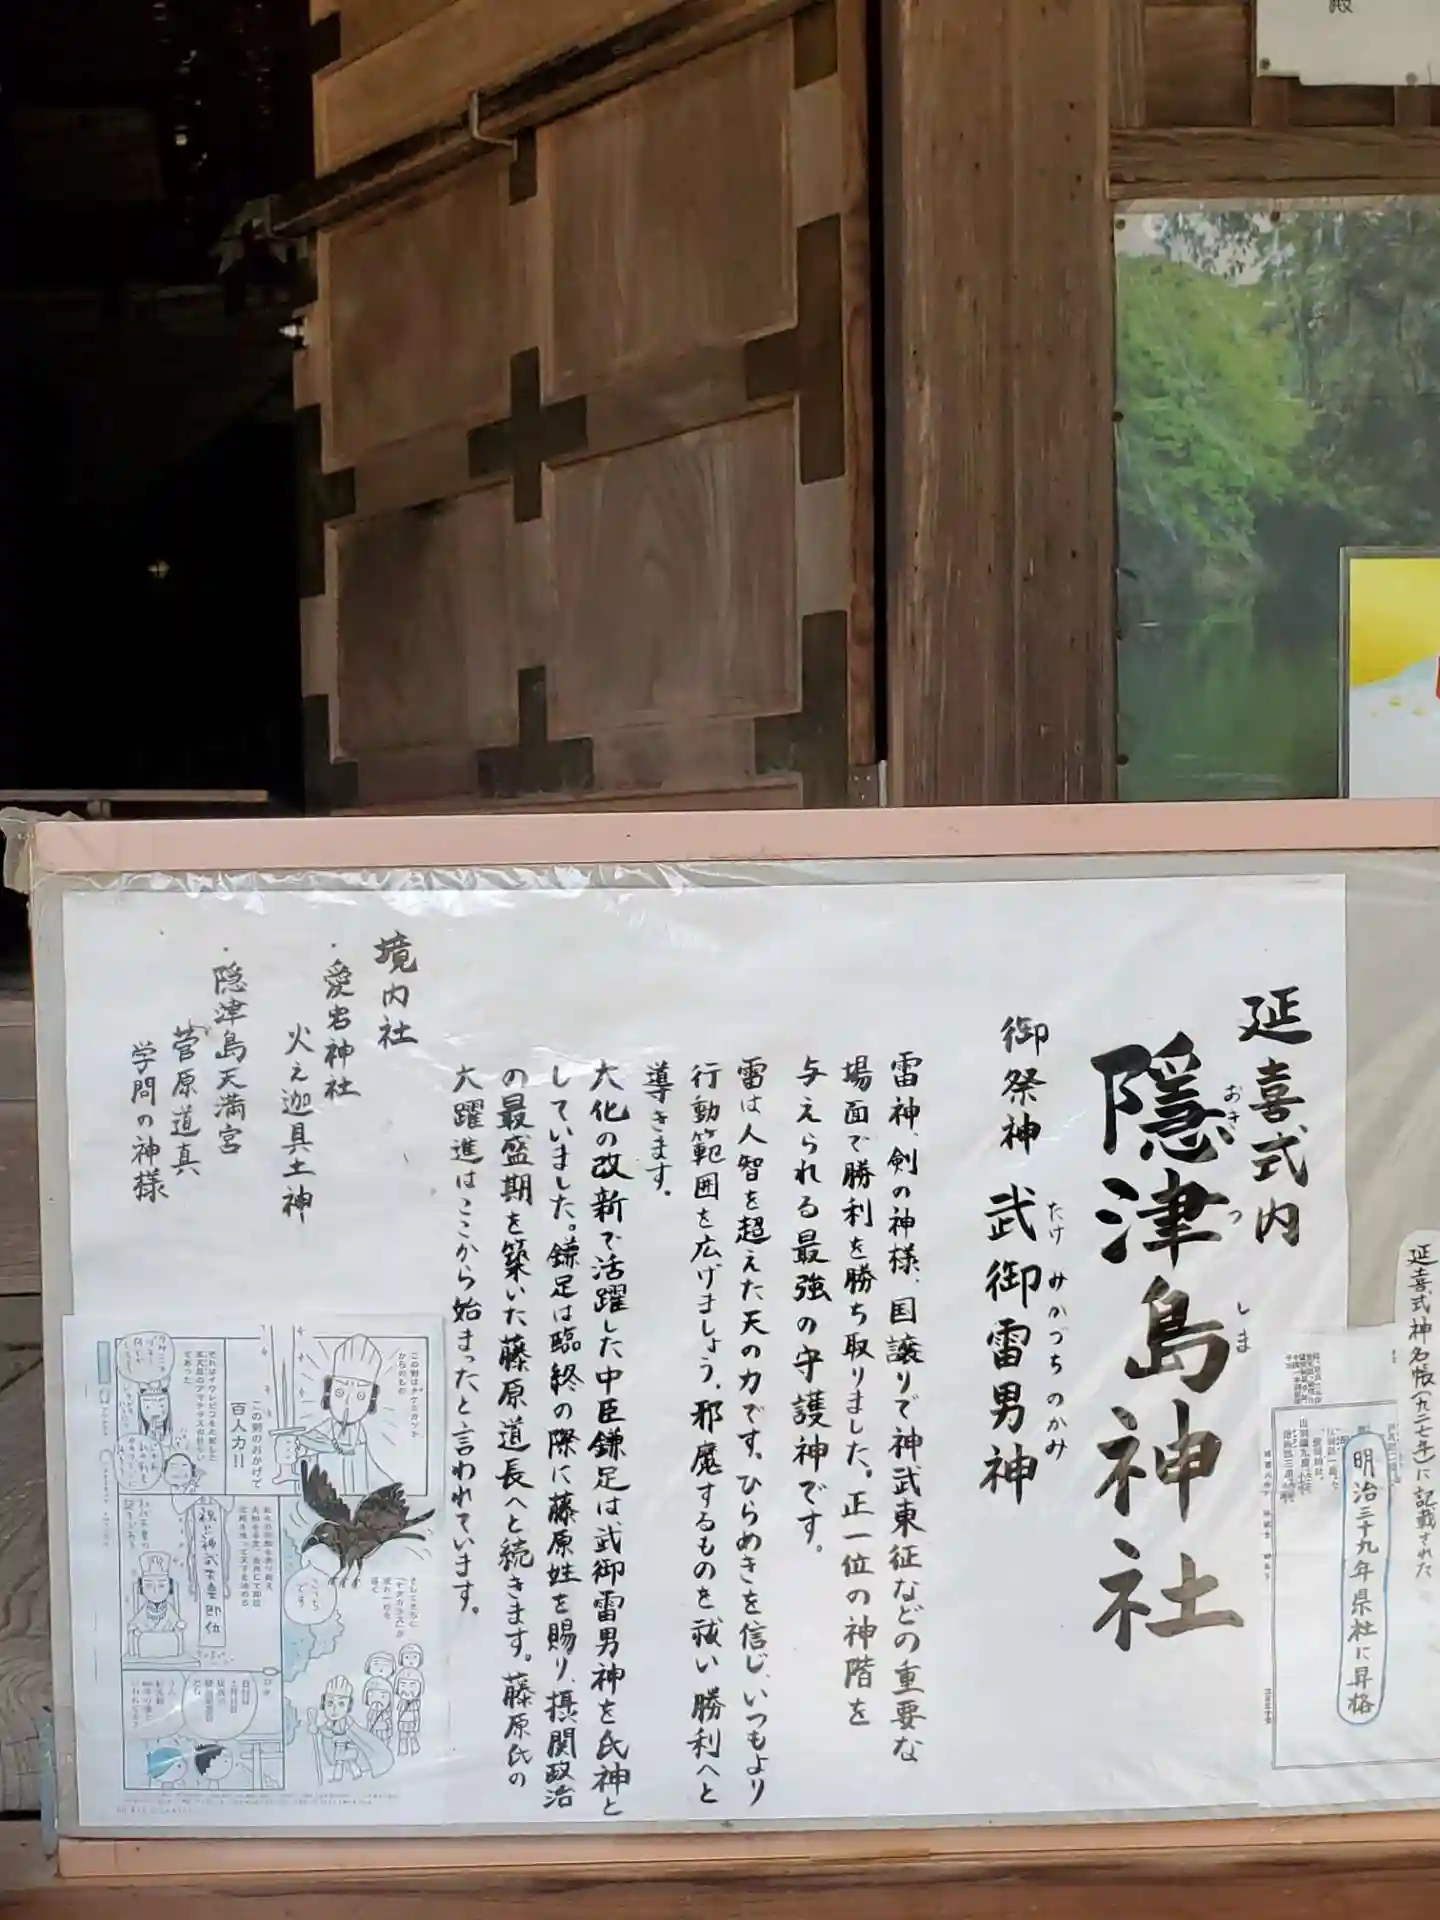 延喜式神名帳(九二七年)に記載された
明治三十九年県社に昇格
延喜式内
隠津島神社
おき つ しま
御祭神 武御雷男神
たけ みかづちのかみ
雷神、剣の神様、国譲りで神武東征などの重要な
場面で勝利を勝ち取りました。正一位の神階を
与えられる最強の守護神です。
雷は人智を超えた天の力です。ひらめきを信じ、いつもより
行動範囲を広げましょう。邪魔するものを祓い勝利へと
導きます。
大化の改新で活躍した中臣鎌足は、武御雷男神を氏神と
していました。鎌足は臨終の際に藤原姓を賜り、摂関政治
の最盛期を築いた藤原道長へと続きます。藤原氏の
大躍進はここから始まったと言われています。
境内社
・愛宕神社
火之迦具土神
・隠津島天満宮
菅原道真
学問の神様
この剣はタケミカヅチ
からのもの
この剣のおかげで
百人力!!
こっち
です
殿